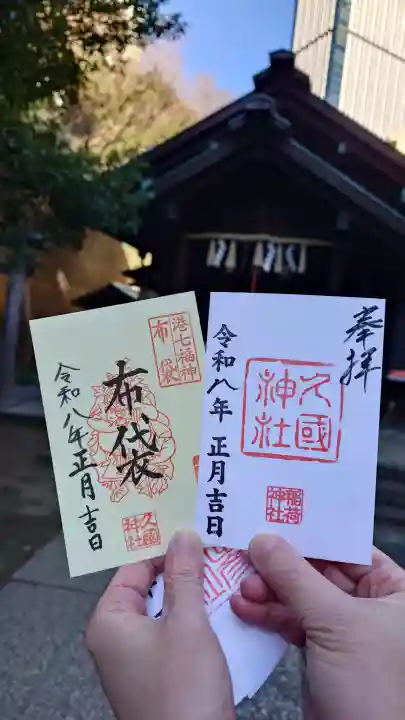 港七福神
布袋
布袋
令和八年正月吉日
久國
神社
奉拝
令和八年 正月吉日
久國
神社
稲荷
神社